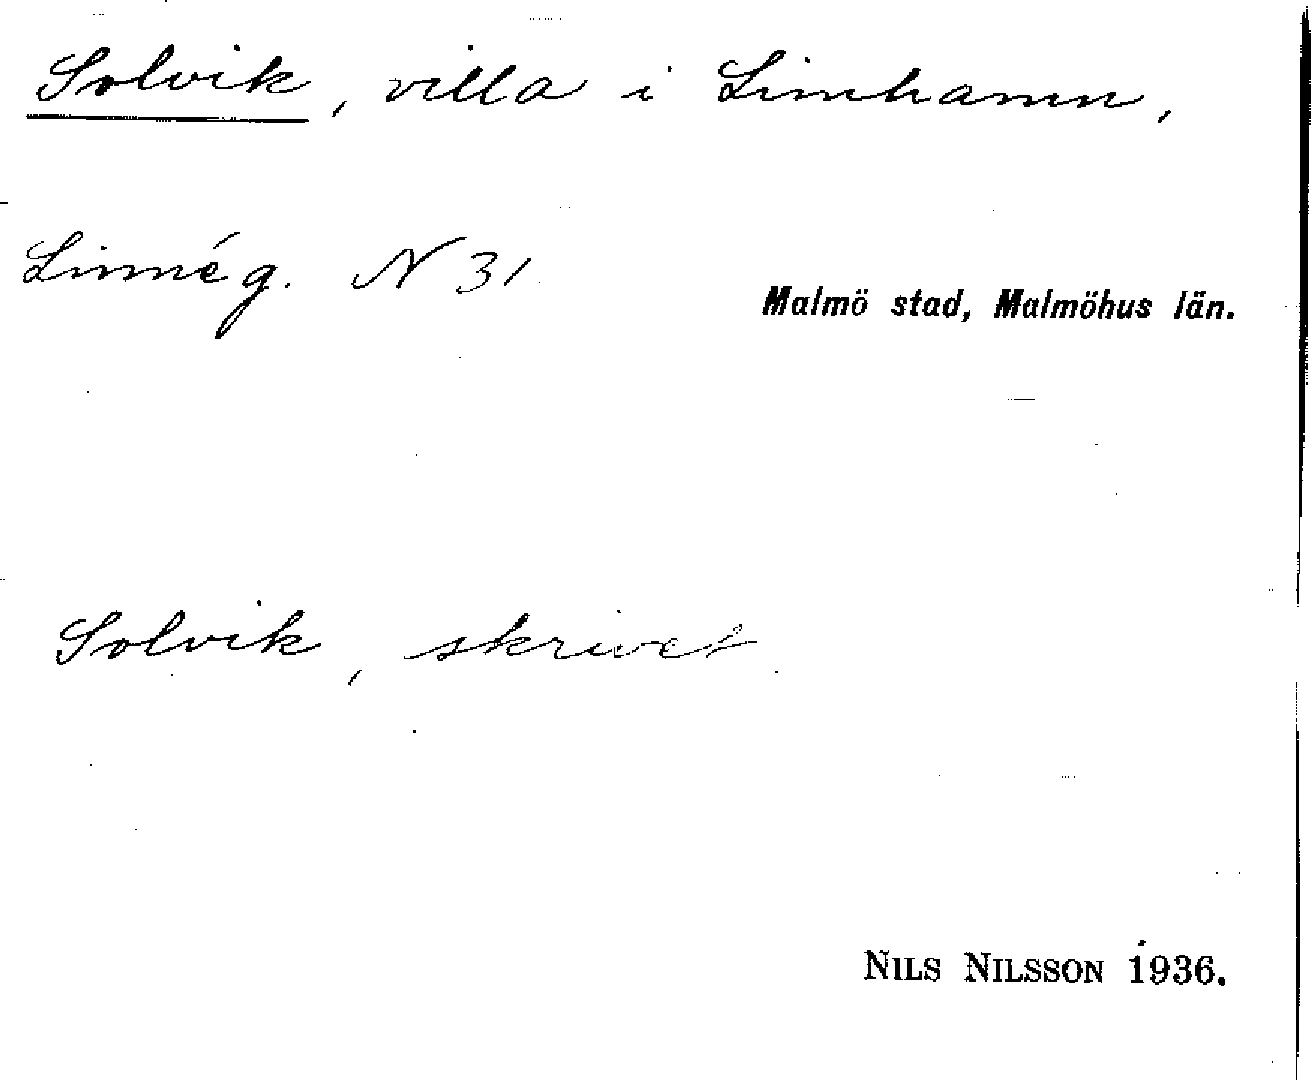 Solvik, villa i Limhamn,
Linnég. N 31
Malmö stad, Malmöhus län.
Solvik, skrivet
NILS NILSSON 1936.